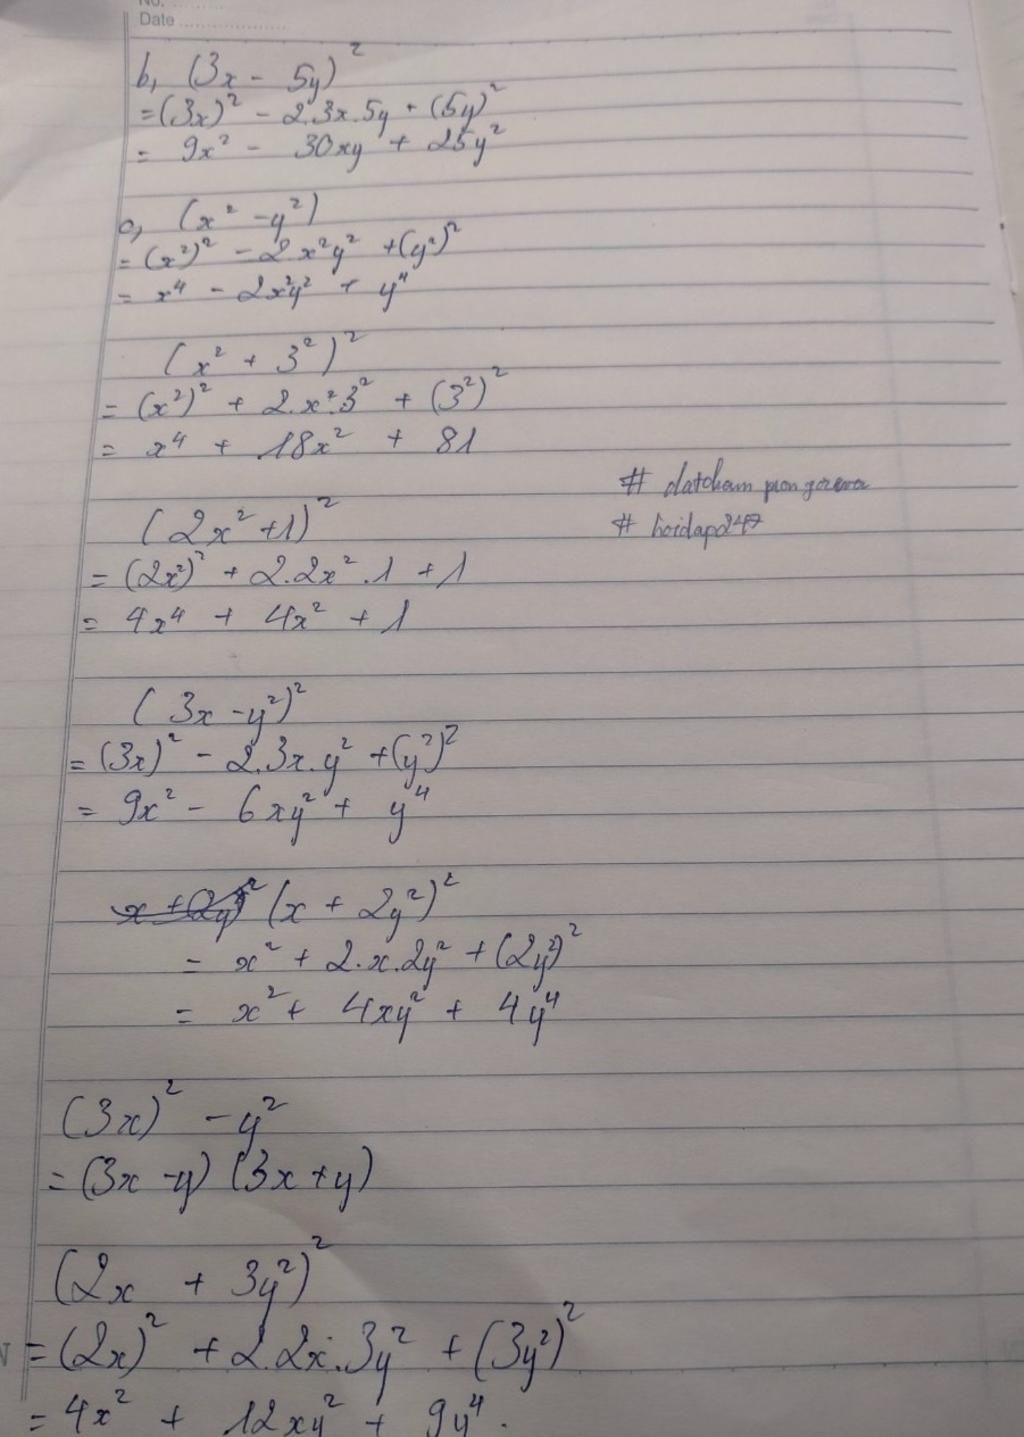 No. ........
Date ..................
b, (3x - 5y)²
= (3x)² - 2.3x.5y + (5y)²
= 9x² - 30xy + 25y²
c, (x² - y²)
= (x²)² - 2x²y² + (y²)²
= x⁴ - 2x²y² + y⁴
(x² + 3²)²
= (x²)² + 2.x².3² + (3²)²
= x⁴ + 18x² + 81
# datcham
# hoidap247
(2x² + 1)²
= (2x²)² + 2.2x².1 + 1
= 4x⁴ + 4x² + 1
(3x - y²)²
= (3x)² - 2.3x.y² + (y²)²
= 9x² - 6xy² + y⁴
(x + 2y²)²
= x² + 2.x.2y² + (2y²)²
= x² + 4xy² + 4y⁴
(3x)² - y²
= (3x - y) (3x + y)
(2x + 3y²)²
= (2x)² + 2.2x.3y² + (3y²)²
= 4x² + 12xy² + 9y⁴.